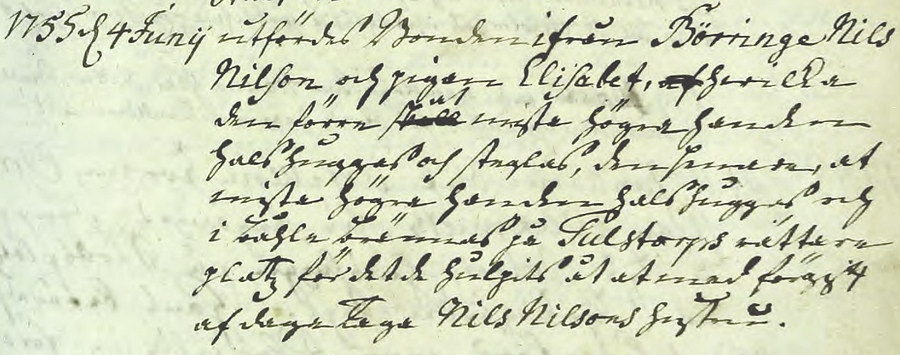 1755 d 4 Junij utfördes Bonden ifrån Börringe Nils
Nilson och pigan Elisabet, af hwilka
den förre skall at mista högra handen
halshuggas och steglas, den senare, at
mista högra handen halshuggas och
i båhle brännas på Julstorps rättare
platz för det de hulpits åt at med förgift
af daga taga Nils Nilsons hustru.